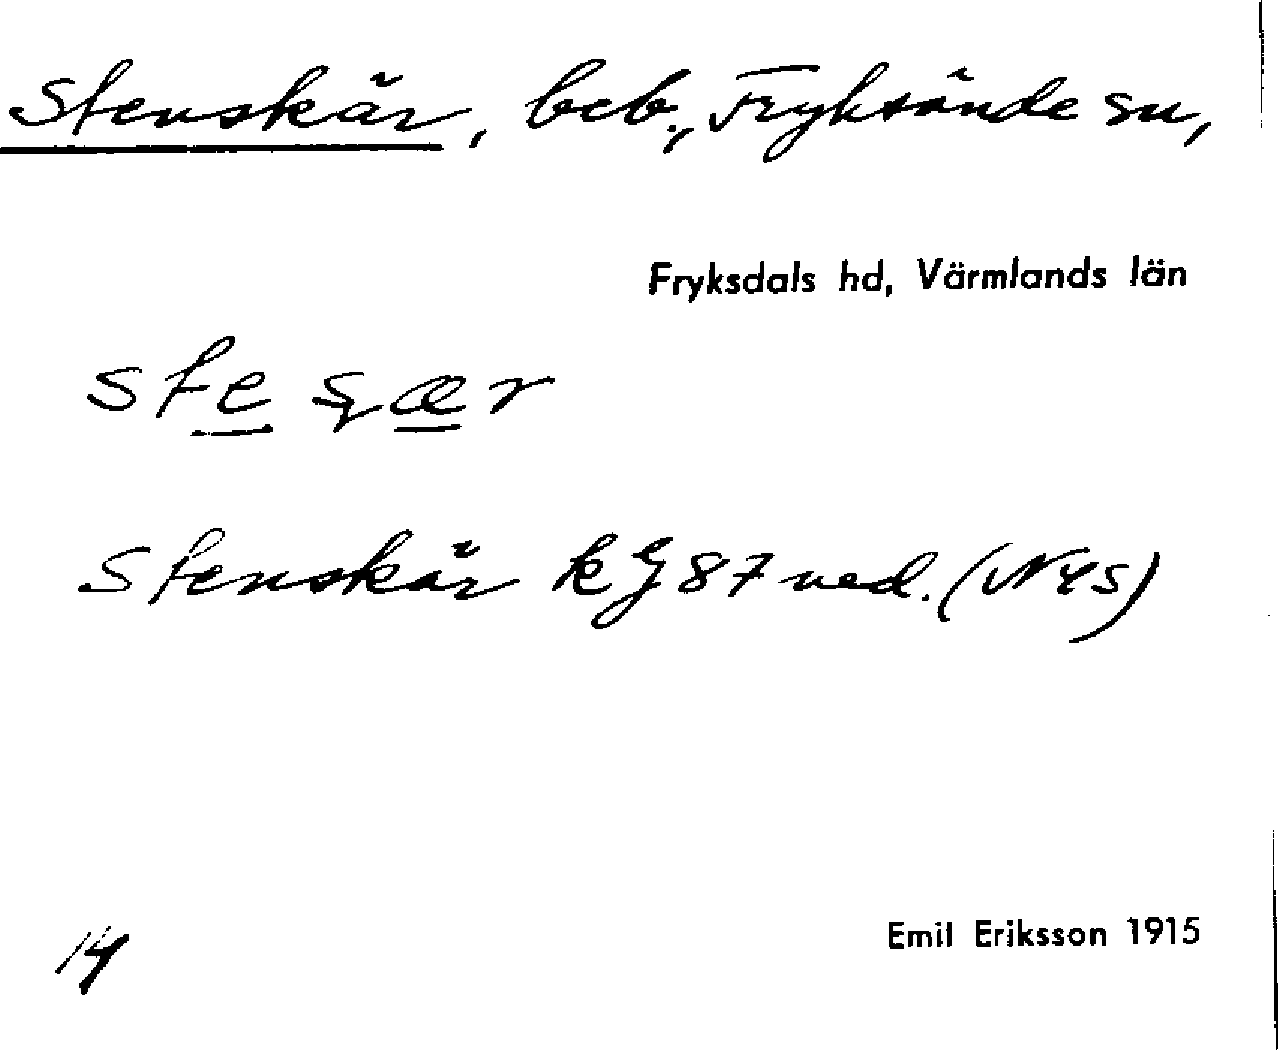 Stenskär, beb., Fryksände sn,
Fryksdals hd, Värmlands län
Stenskär kJ 87 ned. (NYS)
14
Emil Eriksson 1915